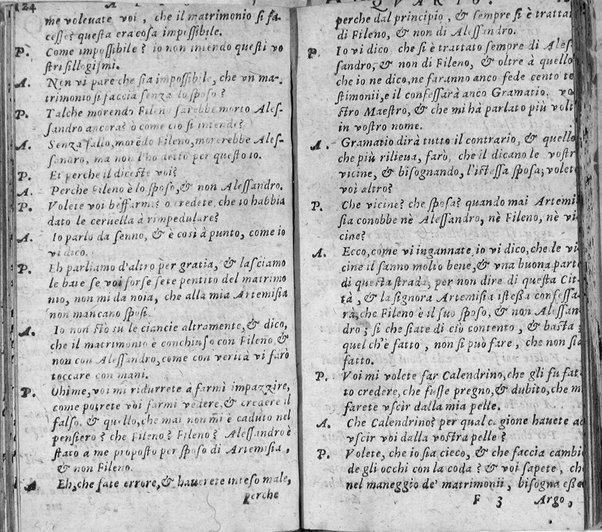 124
me voleuate voi, che il matrimonio si fa-
cesse? questa era cosa impossibile.
P. Come impossibile? io non intendo questi vo
stri sillogismi.
A. Non vi pare che sia impossibile, che vn ma-
trimonio si faccia senza lo sposo?
P. Talche morendo Fileno sarebbe morto Ales-
sandro ancora? ò come ciò si intende?
A. Senza fallo, morẽdo Fileno, morerebbe Ales-
sandro, ma non l'ho detto per questo io.
P. Et perche il diceste voi?
A. Perche Fileno è lo sposo, & non Alessandro.
P. Volete voi beffarmi? o credete, che io habbia
dato le ceruella à rimpedulare?
A. Io parlo da senno, & è così à punto, come io
vi dico.
P. Eh parliamo d'altro per gratia, & lasciamo
le baie se voi forse sete pentito del matrimo
nio, non mi da noia, che alla mia Artemisia
non mancano sposi.
A. Io non stò su le ciancie altramente, & dico,
che il matrimonio è conchiuso con Fileno, &
non con Alessandro, come con verità vi farò
toccare con mani.
P. Ohime, voi mi ridurrete a farmi impazzire,
come potrete voi farmi vedere, & credere il
falso, & quello, che mai non mi è caduto nel
pensiero? che Fileno? Fileno? Alessandro è
stato a me proposto per sposo di Artemisia,
& non Fileno.
A. Eh, che fate errore, & hauerete inteso male,
perche
QVARTO.
perche dal principio, & sempre si è trattat
di Fileno, & non di Alessandro.
P. Io vi dico che si è trattato sempre di Ales
sandro, & non di Fileno, & oltre à quello
che io ne dico, ne faranno anco fede cento te
stimonii, e il confesserà anco Gramatio. vo
stro Maestro, & che mi hà parlato più volt
in vostro nome.
A. Gramatio dirà tutto il contrario, & quello
che più rilieua, farò, che il dicano le vostr
vicine, & bisognando, l'istessa sposa; volete
voi altro?
P. Che vicine? che sposa? quando mai Artemi
sia conobbe nè Alessandro, nè Fileno, nè vi
cine?
A. Ecco, come vi ingannate, io vi dico, che le vi
cine il sanno molto bene, & vna buona parte
di questa strada, per non dire di questa Cit
tà, & la signora Artemisia istessa confessa
rà, che Fileno è il suo sposo, & non Alessan
dro, sì che siate di ciò contento, & basta
quel ch'è fatto, non si può fare, che non sia
fatto.
P. Voi mi volete far Calendrino, che gli fu fat
to credere, che fusse pregno, & dubito, che mi
farete vscir dalla mia pelle.
A. Che Calendrino? per qual cagione hauete ad
vscir voi dalla vostra pelle?
P. Volete, che io sia cieco, & che faccia cambi
de gli occhi con la coda? & voi sapete, che
nel maneggio de' matrimonii, bisogna esse
F 3 Argo,